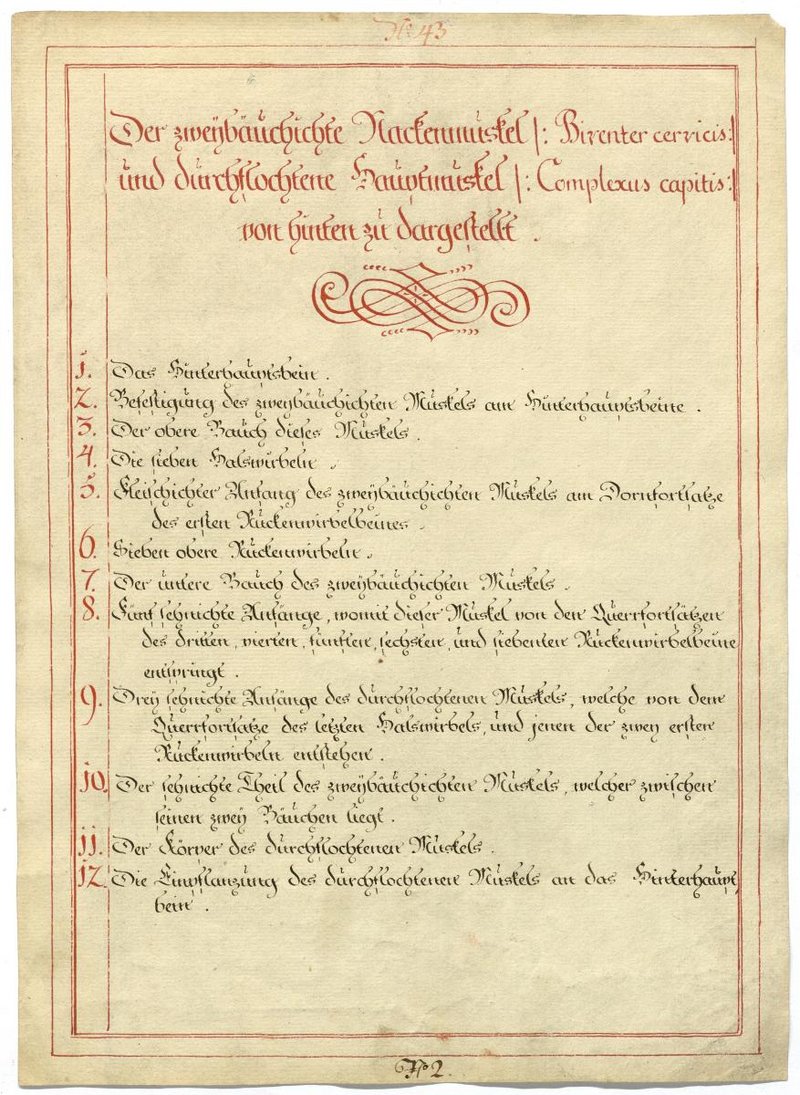 No 43
Der zweÿbäuchichte Nackenmuskel /: Biventer cervicis :/
und durchflochtene Hauptmuskel /: Complexus capitis :/
von hinten zu dargestellt .
1. Das Hinterhauptsbein .
2. Befestigung des zweybäuchichten Muskels am Hinterhauptsbeine .
3. Der obere Bauch dieses Muskels .
4. Die sieben Halswirbeln .
5. Fleischichter Anfang des zweÿbäuchichten Muskels am Dornfortsatze
des ersten Ruckenwirbelbeines .
6. Sieben obere Ruckenwirbeln .
7. Der untere Bauch des zweÿbäuchichten Muskels .
8. Fünf sehnichte Anfänge, womit dieser Muskel von den Querrfortsätzen
des dritten, vierten, fünften, sechsten, und siebenten Ruckenwirbelbeine
entspringt .
9. Dreÿ sehnichte Anfänge des durchflochtenen Muskels, welche von dem
Querrfortsatze des letzten Halswirbels, und jenen der zwey ersten
Ruckenwirbeln entstehen .
10. Der sehnichte Theil des zweÿbäuchichten Muskels, welcher zwischen
seinen zweÿ Bäuchen liegt .
11. Der Körper des durchflochtenen Muskels .
12. Die Einpflanzung des durchflochtenen Muskels an das Hinterhaupt
bein .
No 2.